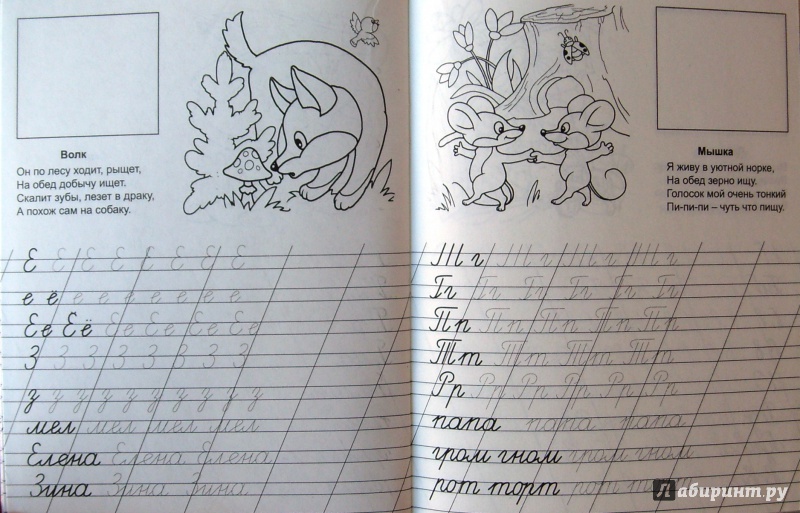 Волк
Он по лесу ходит, рыщет,
На обед добычу ищет.
Скалит зубы, лезет в драку,
А похож сам на собаку.
Е Е Е Е Е Е Е Е
е ё е е е е е е е
Ее Её Ее Ее Ее Ее
З З З З З З З З
з з з з з з з з з з
мел мел мел мел
Елена Елена Елена
Зина Зина Зина
Мышка
Я живу в уютной норке,
На обед зерно ищу.
Голосок мой очень тонкий
Пи-пи-пи – чуть что пищу.
Т г Т г Т г Т г
Гг Гг Гг Гг Гг Гг
Пп Пп Пп Пп Пп
Тт Тт Тт Тт
Рр Рр Рр Рр Рр Рр
папа папа папа
гром гном гром гном
рот торт рот
Лабиринт.ру